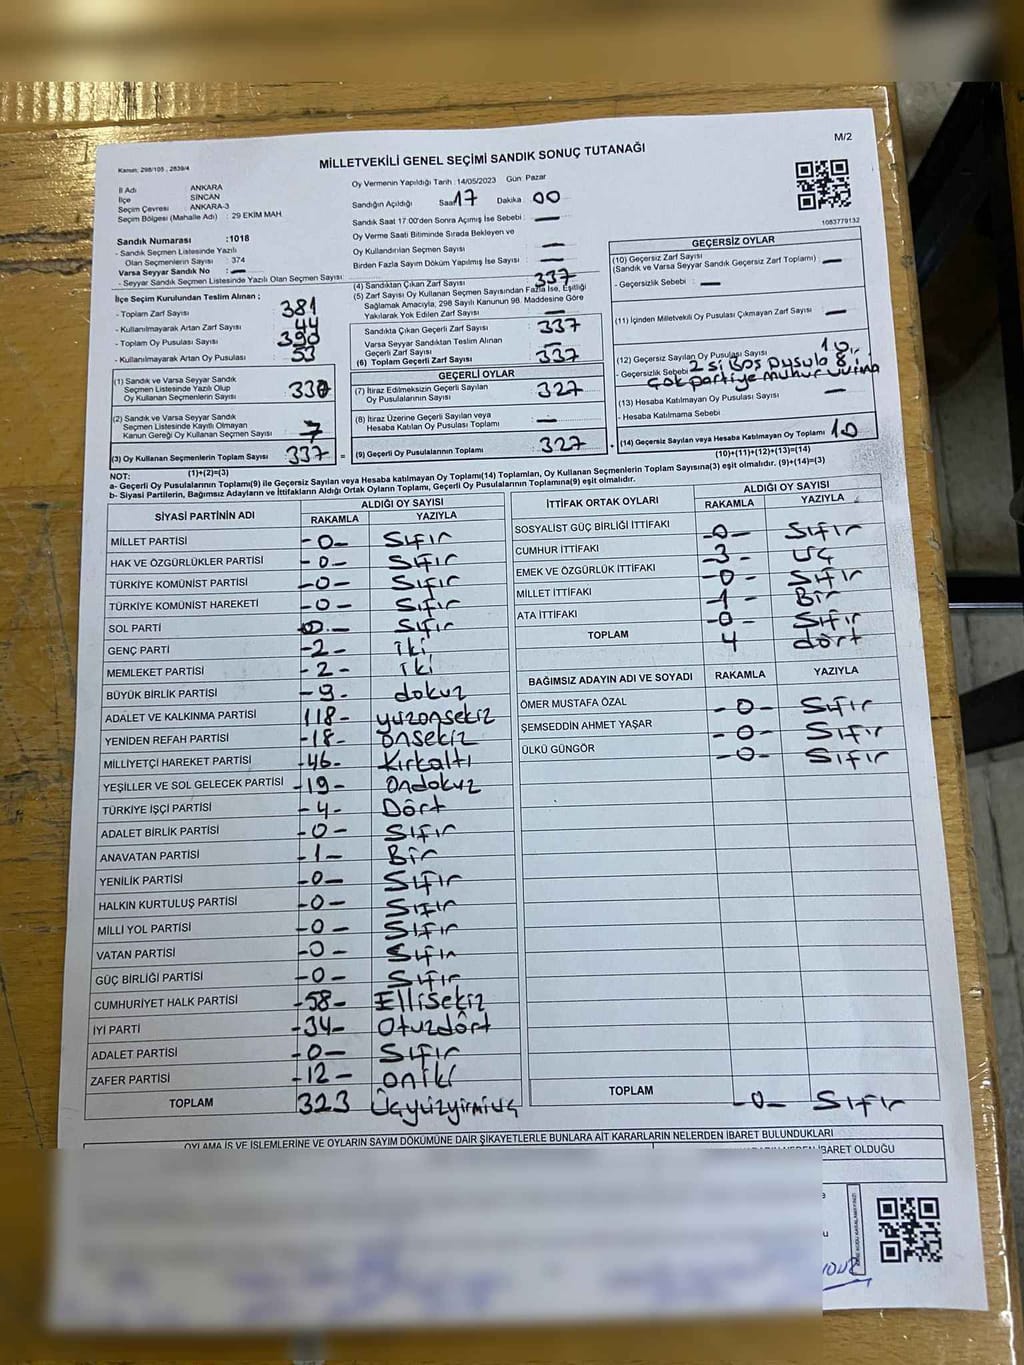 M/2
Kanun: 298/105 , 2839/4
MİLLETVEKİLİ GENEL SEÇİMİ SANDIK SONUÇ TUTANAĞI
İl Adı ANKARA
İlçe SİNCAN
Seçim Çevresi : ANKARA-3
Seçim Bölgesi (Mahalle Adı) : 29 EKİM MAH
Sandık Numarası :1018
- Sandık Seçmen Listesinde Yazılı
Olan Seçmenlerin Sayısı : 374
Varsa Seyyar Sandık No : —
- Seyyar Sandık Seçmen Listesinde Yazılı Olan Seçmen Sayısı:
Oy Vermenin Yapıldığı Tarih :14/05/2023 Gün Pazar
Sandığın Açıldığı Saat 17 Dakika 00
Sandık Saat 17:00'den Sonra Açımış İse Sebebi : —
Oy Verme Saati Bitiminde Sırada Bekleyen ve
Oy Kullandırılan Seçmen Sayısı : —
Birden Fazla Sayım Döküm Yapılmış İse Sayısı : —
1083779132
İlçe Seçim Kurulundan Teslim Alınan ;
- Toplam Zarf Sayısı : 381
- Kullanılmayarak Artan Zarf Sayısı : 44
- Toplam Oy Pusulası Sayısı : 390
- Kullanılmayarak Artan Oy Pusulası : 53
(1) Sandık ve Varsa Seyyar Sandık
Seçmen Listesinde Yazılı Olup
Oy Kullanan Seçmenlerin Sayısı : 330
(2) Sandık ve Varsa Seyyar Sandık
Seçmen Listesinde Kayıtlı Olmayan
Kanun Gereği Oy Kullanan Seçmen Sayısı : 7
(3) Oy Kullanan Seçmenlerin Toplam Sayısı : 337 =
(1)+(2)=(3)
(4) Sandıktan Çıkan Zarf Sayısı : 337
(5) Zarf Sayısı Oy Kullanan Seçmen Sayısından Fazla İse, Eşitliği
Sağlamak Amacıyla; 298 Sayılı Kanunun 98. Maddesine Göre
Yakılarak Yok Edilen Zarf Sayısı : —
Sandıkta Çıkan Geçerli Zarf Sayısı : 337
Varsa Seyyar Sandıktan Teslim Alınan
Geçerli Zarf Sayısı : —
(6) Toplam Geçerli Zarf Sayısı : 337
GEÇERLİ OYLAR
(7) İtiraz Edilmeksizin Geçerli Sayılan
Oy Pusulalarının Sayısı : 327
(8) İtiraz Üzerine Geçerli Sayılan veya
Hesaba Katılan Oy Pusulası Toplamı : —
(9) Geçerli Oy Pusulalarının Toplamı : 327
GEÇERSİZ OYLAR
(10) Geçersiz Zarf Sayısı
(Sandık ve Varsa Seyyar Sandık Geçersiz Zarf Toplamı) : —
- Geçersizlik Sebebi : —
(11) İçinden Milletvekili Oy Pusulası Çıkmayan Zarf Sayısı : —
(12) Geçersiz Sayılan Oy Pusulası Sayısı : 10
- Geçersizlik Sebebi 2 si Boş pusula 8 i
Çok partiye mühür vurma
(13) Hesaba Katılmayan Oy Pusulası Sayısı : —
- Hesaba Katılmama Sebebi
(14) Geçersiz Sayılan veya Hesaba Katılmayan Oy Toplamı : 10
(10)+(11)+(12)+(13)=(14)
NOT:
a- Geçerli Oy Pusulalarının Toplamı(9) ile Geçersiz Sayılan veya Hesaba katılmayan Oy Toplamı(14) Toplamları, Oy Kullanan Seçmenlerin Toplam Sayısına(3) eşit olmalıdır. (9)+(14)=(3)
b- Siyasi Partilerin, Bağımsız Adayların ve İttifakların Aldığı Ortak Oyların Toplamı, Geçerli Oy Pusulalarının Toplamına(9) eşit olmalıdır.
SİYASİ PARTİNİN ADI ALDIĞI OY SAYISI
RAKAMLA YAZIYLA
MİLLET PARTİSİ -0- Sıfır
HAK VE ÖZGÜRLÜKLER PARTİSİ -0- Sıfır
TÜRKİYE KOMÜNİST PARTİSİ -0- Sıfır
TÜRKİYE KOMÜNİST HAREKETİ -0- Sıfır
SOL PARTİ -0- Sıfır
GENÇ PARTİ -2- iki
MEMLEKET PARTİSİ -2- iki
BÜYÜK BİRLİK PARTİSİ -9- dokuz
ADALET VE KALKINMA PARTİSİ 118- yüzonsekiz
YENİDEN REFAH PARTİSİ -18- onsekiz
MİLLİYETÇİ HAREKET PARTİSİ -46- Kırkaltı
YEŞİLLER VE SOL GELECEK PARTİSİ -19- Ondokuz
TÜRKİYE İŞÇİ PARTİSİ -4- Dört
ADALET BİRLİK PARTİSİ -0- Sıfır
ANAVATAN PARTİSİ -1- Bir
YENİLİK PARTİSİ -0- Sıfır
HALKIN KURTULUŞ PARTİSİ -0- Sıfır
MİLLİ YOL PARTİSİ -0- Sıfır
VATAN PARTİSİ -0- Sıfır
GÜÇ BİRLİĞİ PARTİSİ -0- Sıfır
CUMHURİYET HALK PARTİSİ -58- Ellisekiz
İYİ PARTİ -34- Otuzdört
ADALET PARTİSİ -0- Sıfır
ZAFER PARTİSİ -12- oniki
TOPLAM 323 Üçyüzyirmiüç
İTTİFAK ORTAK OYLARI ALDIĞI OY SAYISI
RAKAMLA YAZIYLA
SOSYALİST GÜÇ BİRLİĞİ İTTİFAKI -0- Sıfır
CUMHUR İTTİFAKI -3- Üç
EMEK VE ÖZGÜRLÜK İTTİFAKI -0- Sıfır
MİLLET İTTİFAKI -1- Bir
ATA İTTİFAKI -0- Sıfır
TOPLAM 4 dört
BAĞIMSIZ ADAYIN ADI VE SOYADI RAKAMLA YAZIYLA
ÖMER MUSTAFA ÖZAL -0- Sıfır
ŞEMSEDDİN AHMET YAŞAR -0- Sıfır
ÜLKÜ GÜNGÖR -0- Sıfır
TOPLAM -0- Sıfır
OYLAMA İŞ VE İŞLEMLERİNE VE OYLARIN SAYIM DÖKÜMÜNE DAİR ŞİKAYETLERLE BUNLARA AİT KARARLARIN NELERDEN İBARET BULUNDUKLARI
İBARET OLDUĞU